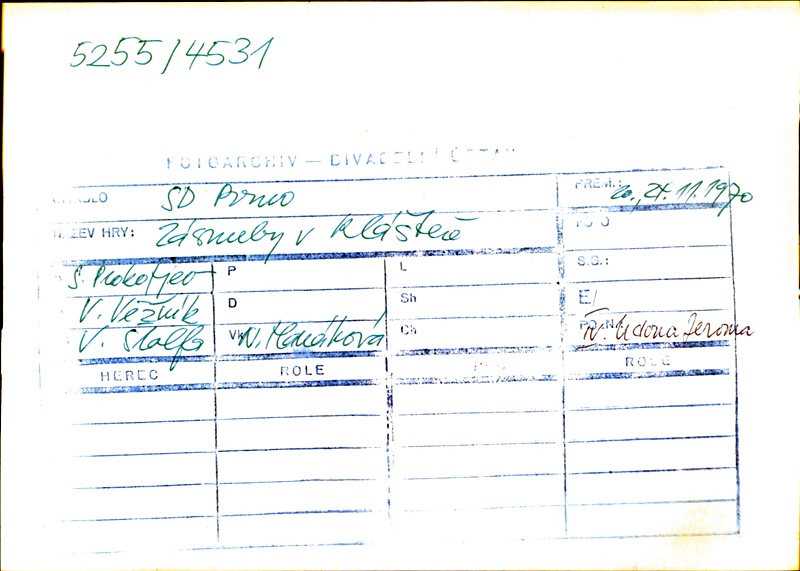 5255/4531
FOTOARCHIV — DIVADELNÍ ÚSTAV
DIVADLO SD Brno PREM.: 20., 21.11.1970
NÁZEV HRY: Zásnuby v klášteře
S. Prokofjev P L S.G.:
V. Věžník D Sh E/
V. Štolfa Vk N. Hanáková Ch POZN. IV. Udona Jeroma
HEREC ROLE ROLE